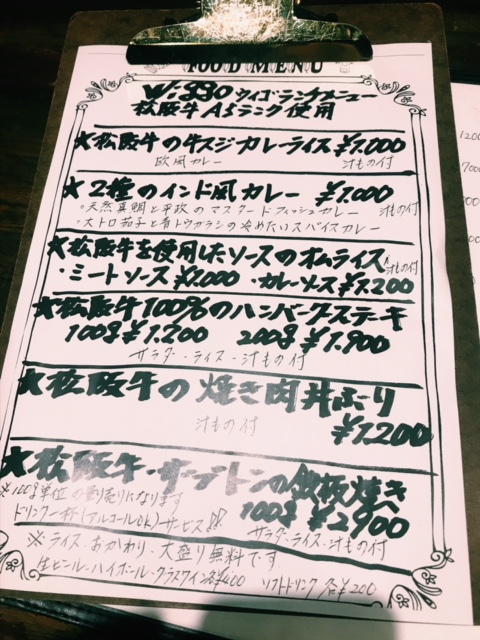 FOOD MENU
W:330 ウイゴ ランクメニュー
松阪牛A5ランク使用
★松阪牛の牛スジカレーライス ¥1.000
欧風カレー 汁もの付
★2種のインド風カレー ¥1.000
・天然真鯛と平政のマスタードフィッシュカレー 汁もの付
・大トロ茄子と青トウガラシの冷めたいスパイスカレー
★松阪牛を使用したソースのオムライス 汁もの付
・ミートソース ¥1.000 ・カレーソース ¥1.200
★松阪牛100%のハンバーグステーキ
100g ¥1.200 200g ¥1.900
サラダ・ライス・汁もの付
★松阪牛の焼き肉丼ぶり
汁もの付 ¥1.200
★松阪牛・ザブトンの鉄板焼き
※100g単位の割り売りになります 100g ¥2900
ドリンク一杯(アルコールOK)サービス!! サラダ・ライス・汁もの付
※ライス・おかわり・大盛り無料です
生ビール・ハイボール・グラスワイン各¥400 ソフトドリンク 各¥200
1200